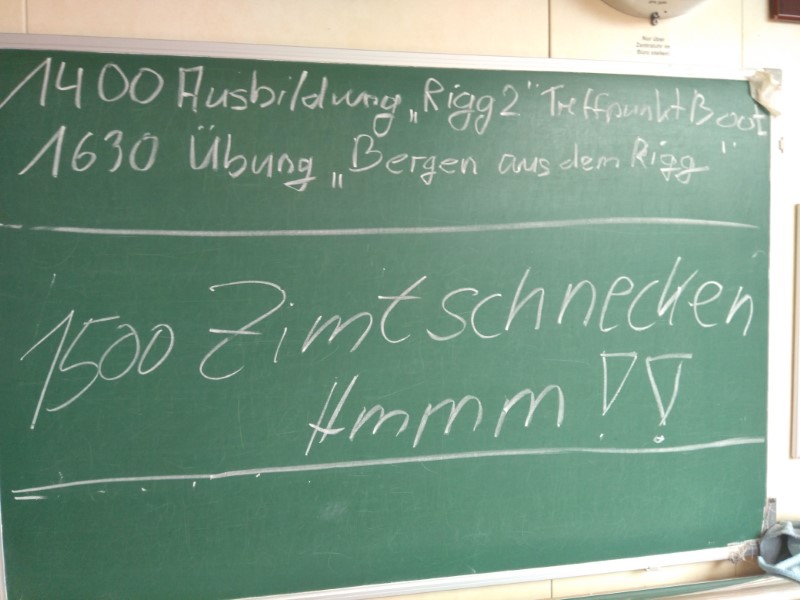 Nur über
Zentraluhr im
Büro stellen!
1400 Ausbildung „Rigg 2" Treffpunkt Boot
1630 Übung „Bergen aus dem Rigg"
1500 Zimtschnecken
Hmmm !!